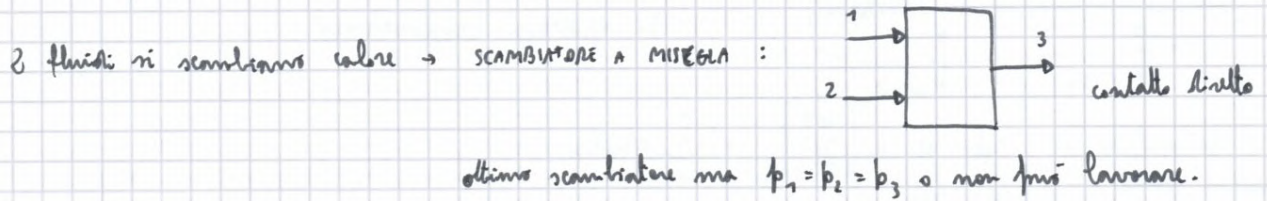 2 fluidi si scambiano calore → SCAMBIATORE A MISEGLA :
1
2
3
contatto diretto
ottimo scambiatore ma p₁ = p₂ = p₃ o non può lavorare.